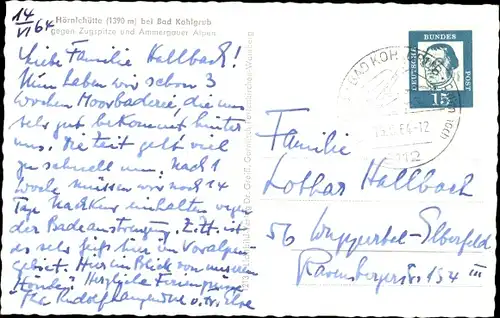 14/VI 64
Hörnlehütte (1390 m) bei Bad Kohlgrub
gegen Zugspitze und Ammergauer Alpen
Liebe Familie Hallbach!
Nun haben wir schon 3
Wochen Moorbaderei, die uns
sehr gut bekommt hinter
uns. Die Zeit geht viel
zu schnell um. Nach 1
Woche müssen wir noch 14
Tage Nachkur einhalten wegen
der Badeanstrengung. Z. Zt. ist
es sehr heiß hier im Voralpen-
gebiet. Hier im Blick von unserem
Herzliche Feriengrüsse
DEUTSCHE BUNDESPOST
15
BAD KOHLGRUB
Familie
Lothar Hallbach
56 Wuppertal-Elberfeld
Ravensbergerstr 154 III